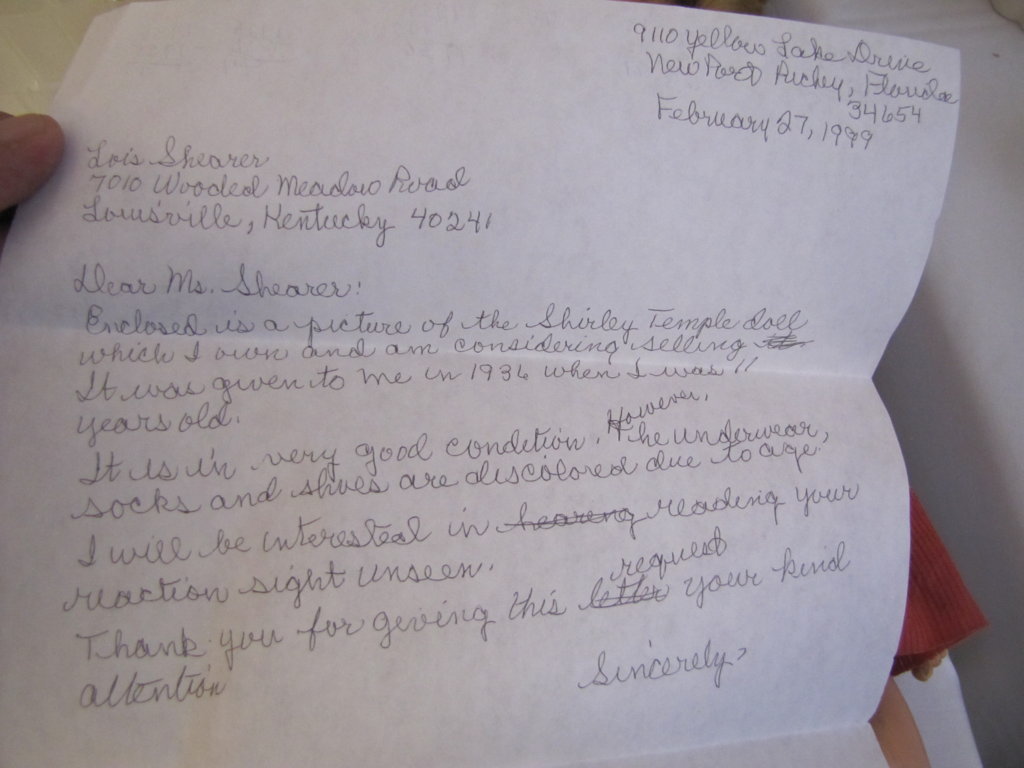 9110 Yellow Lake Drive
New Port Richey, Florida
34654
February 27, 1999
Lois Shearer
7010 Wooded Meadow Road
Louisville, Kentucky 40241
Dear Ms. Shearer:
Enclosed is a picture of the Shirley Temple doll
which I own and am considering selling
It was given to me in 1936 when I was 11
years old.
It is in very good condition. However, the underwear,
socks and shoes are discolored due to age.
I will be interested in hearing reading your
reaction sight unseen.
Thank you for giving this letter request your kind
attention
Sincerely,